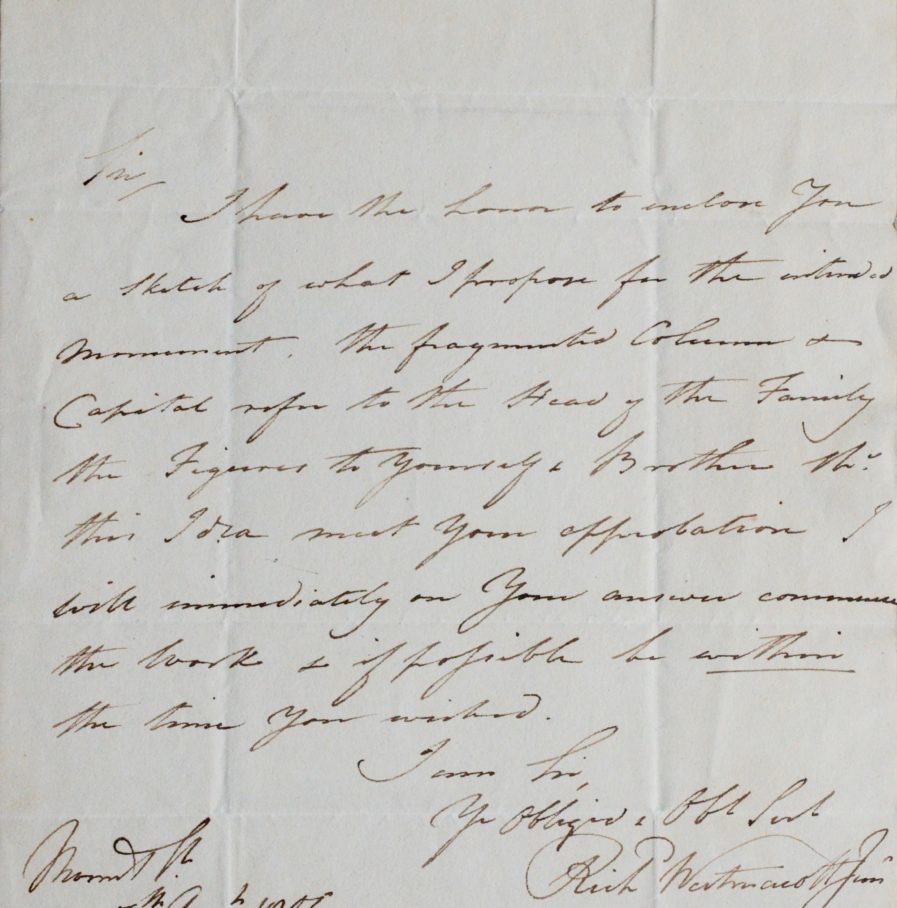 Sir,
I have the honor to enclose You
a Sketch of what I propose for the intended
Monument. the fragmented Column &
Capital refer to the Head of the Family
the Figures to Yourself & Brother
this Idea meet Your approbation I
will immediately on Your answer commence
the Work & if possible be within
the time You wished.
I am Sir,
Yr Obliged & Obt Sert
Richd Westmacott Junr
Mount St.